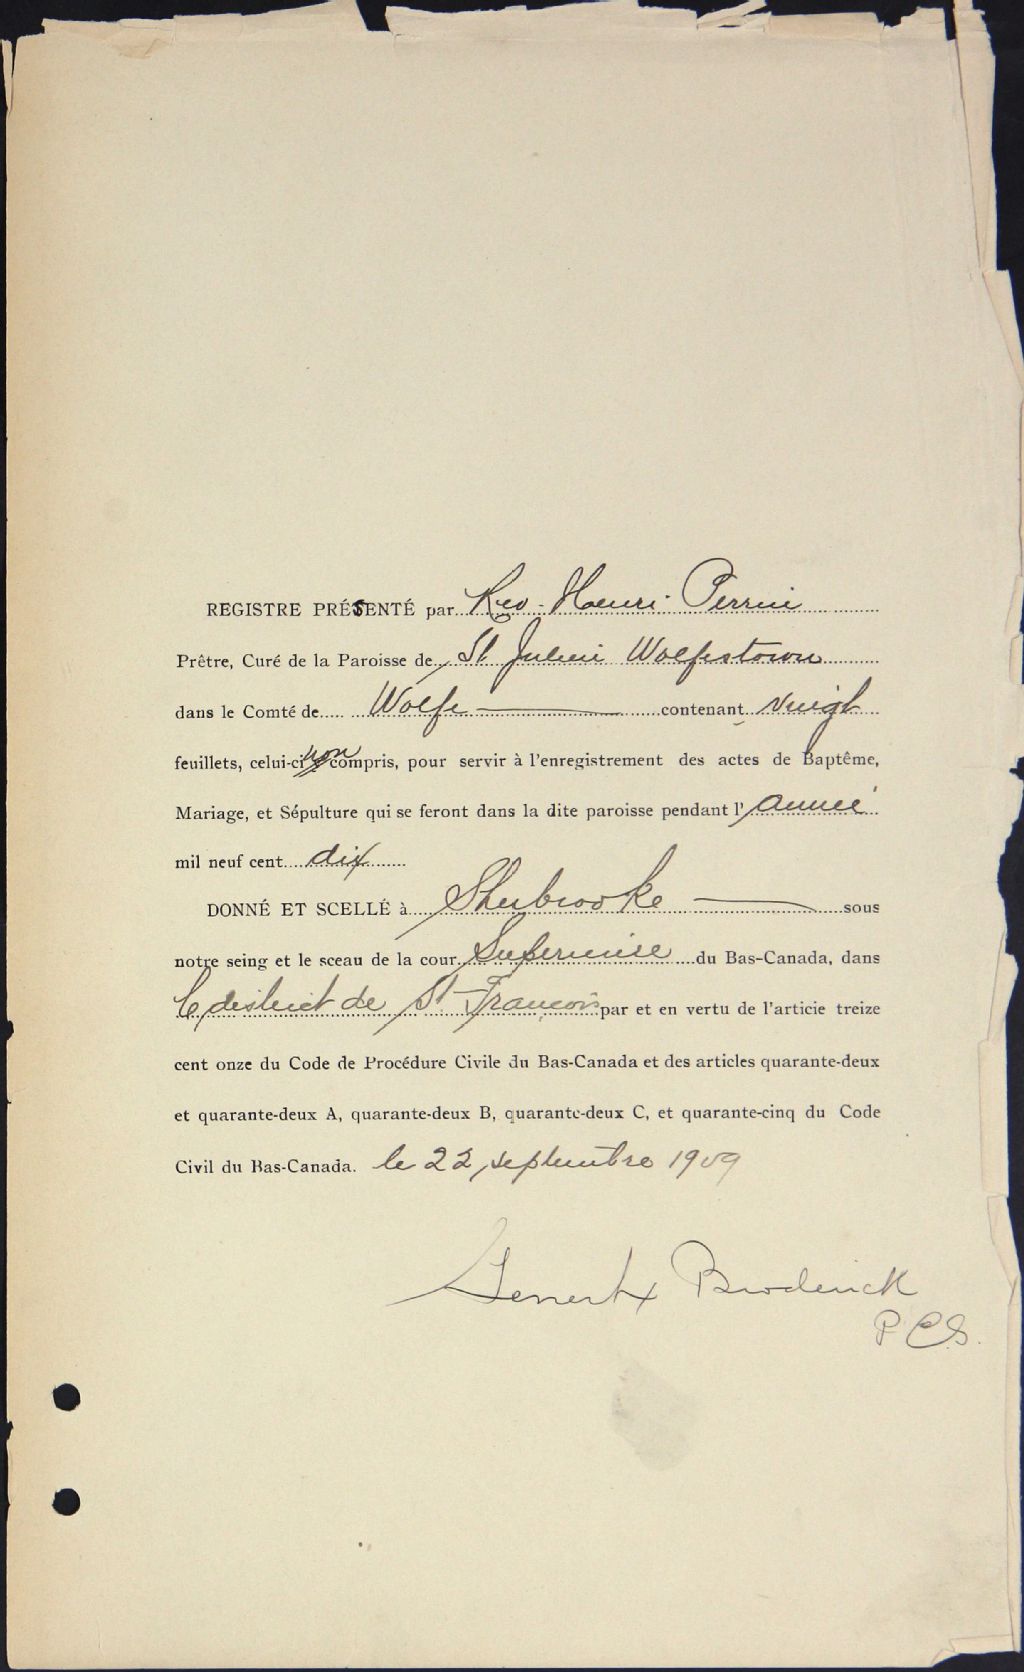 REGISTRE PRÉSENTÉ par Rev. Henri Perrin
Prêtre, Curé de la Paroisse de St Julien Wolfestown
dans le Comté de Wolfe contenant vingt
feuillets, celui-ci non compris, pour servir à l'enregistrement des actes de Baptême,
Mariage, et Sépulture qui se feront dans la dite paroisse pendant l'année
mil neuf cent dix
DONNÉ ET SCELLÉ à Sherbrooke sous
notre seing et le sceau de la cour Superieure du Bas-Canada, dans
le district de St François par et en vertu de l'articie treize
cent onze du Code de Procédure Civile du Bas-Canada et des articles quarante-deux
et quarante-deux A, quarante-deux B, quarante-deux C, et quarante-cinq du Code
Civil du Bas-Canada. le 22 septembre 1909
Broderick
P C S.